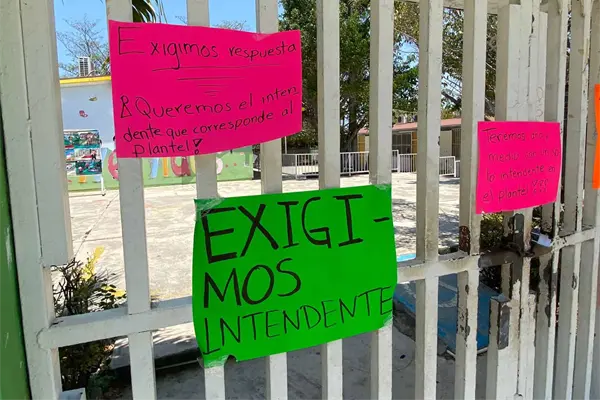 Exigimos respuesta
¡Queremos el inten
dente que corresponde al
Plantel!
EXIGI-
MOS
INTENDENTE
Tenemos
intendente en
el Plantel